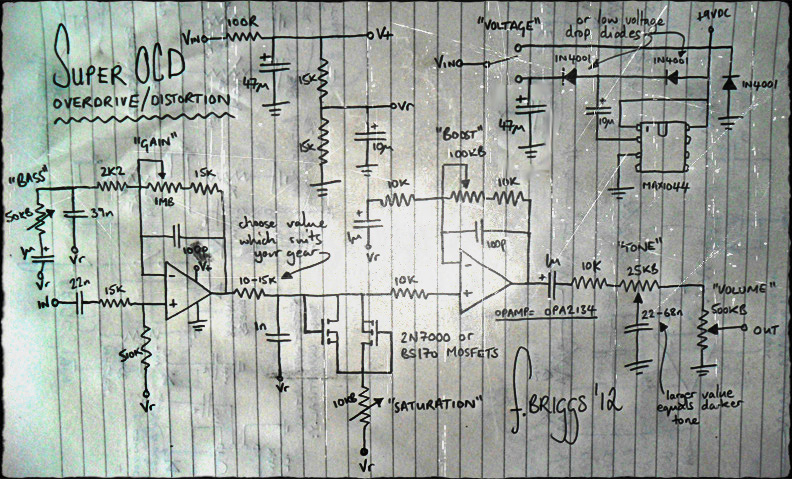 SUPER OCD
OVERDRIVE/DISTORTION
VIN
100R
V+
47µ
15K
Vr
15K
10µ
"VOLTAGE"
or low voltage
drop diodes
+9VDC
VIN
1N4001
1N4001
1N4001
47µ
10µ
1
MAX1044
"BASS"
50KB
1µ
Vr
39n
Vr
2K2
"GAIN"
1MB
15K
100p
V+
-
+
IN
22n
15K
510K
Vr
choose value
which suits
your gear
10-15K
1n
Vr
2N7000 or
BS170 MOSFETS
10KB
"SATURATION"
Vr
1µ
Vr
10K
"BOOST"
100KB
10K
100p
10K
-
+
OPAMP = OPA2134
1µ
10K
"TONE"
25KB
22-68n
larger value
equals darker
tone
"VOLUME"
500KB
OUT
f. BRIGGS '12